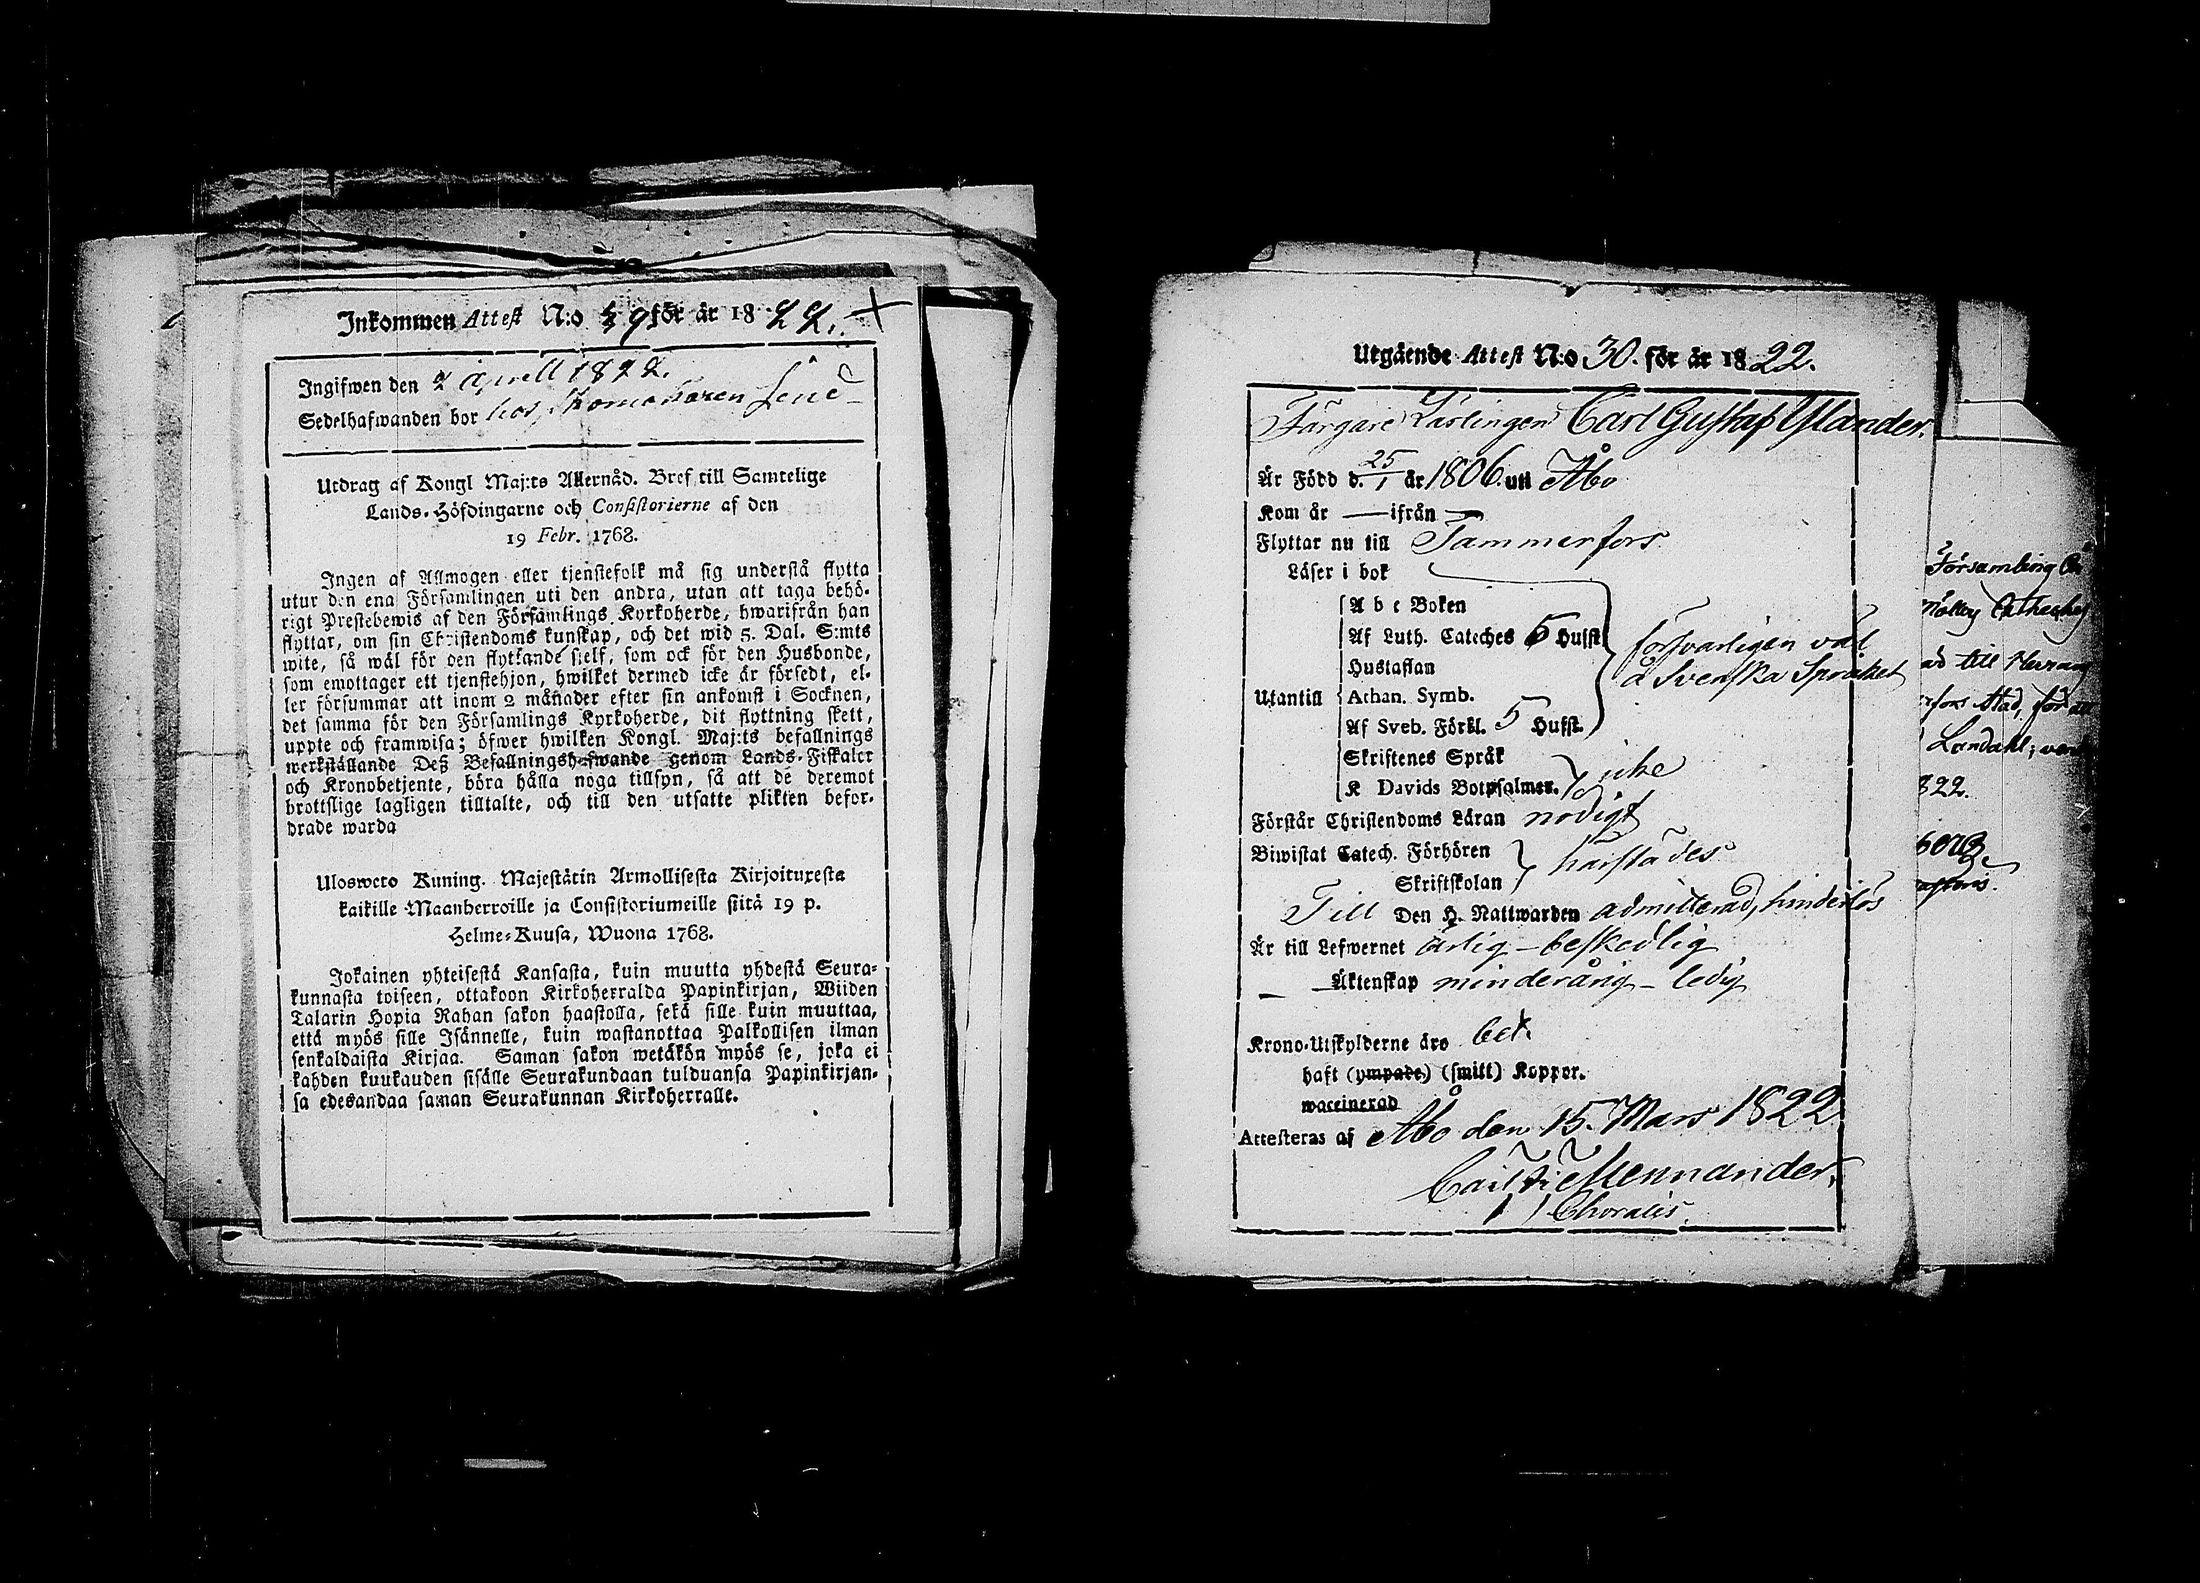 Inkommen Attest N:o 49 för år 1822.
Ingifwen den 2 Aprill 1822.
Sedelhafwanden bor hos Skomakaren Lind
Utdrag af Kongl Maj:ts Allernåd. Bref till Samtelige
Lands-Höfdingarne och Consistorierne af den
19 Febr. 1768.
Ingen af Allmogen eller tjenstefolk må sig understå flytta
utur den ena Församlingen uti den andra, utan att taga behö-
rigt Prestebewis af den Församlings Kyrkoherde, hwarifrån han
flyttar, om sin Christendoms kunskap, och det wid 5. Dal. S:mts
wite, så wäl för den flyttande sielf, som ock för den Husbonde,
som emottager ett tjenstehjon, hwilket dermed icke är försedt, el-
ler försummar att inom 2 månader efter sin ankomst i Socknen,
det samma för den Församlings Kyrkoherde, dit flyttning skett,
uppte och framwisa; öfwer hwilken Kongl. Maj:ts befallnings
werkställande Deß Befallningshafwande genom Lands-Fiskaler
och Kronobetjente, böra hålla noga tillsyn, så att de deremot
brottslige lagligen tilltalte, och till den utsatte plikten befor-
drade warda
Ulosweto Kuning. Majestätin Armollisesta Kirjoituxesta
kaikille Maanherroille ja Consistoriumeille siitä 19 p.
Helme-Kuusa, Wuona 1768.
Jokainen yhteisestä Kansasta, kuin muutta yhdestä Seura-
kunnasta toiseen, ottakoon Kirkoherralda Papinkirjan, Wiiden
Talarin Hopia Rahan sakon haastolla, sekä sille kuin muuttaa,
että myös sille Isännelle, kuin wastanottaa Palkollisen ilman
senkaldaista Kirjaa. Saman sakon wetäkön myös se, joka ei
kahden kuukauden sisälle Seurakundaan tulduansa Papinkirjan-
sa edesandaa saman Seurakunnan Kirkoherralle.
Utgående Attest N:o 30. för år 1822.
Färgare Lärlingen Carl Gustaf Ylander.
Är Född d. 25/1 år 1806. uti Åbo
Kom år — ifrån —
Flyttar nu till Tammerfors
Läser i bok
A b c Boken
Af Luth. Cateches 5 Hufst
Hustaflan
Utantill Athan. Symb.
Af Sveb. Förkl. 5 Hufst.
försvarligen väl
å Svenska Språket
Skriftenes Språk
K Davids Botpsalmer. icke
Förstår Christendoms Läran nödigt
Biwistat Catech. Förhören
Skriftskolan härstädes
Till Den H. Nattwarden admitterad, hinderlös
Är till Lefwernet ärlig - beskedlig
Äktenskap minderårig - ledig
Krono-Utskylderne äro bet.
haft (ympade) (smitt) Koppor.
waccinerad
Attesteras af Åbo den 15. Mars 1822.
Mennander.
Församling
till
Stad, för
Landahl;
822.